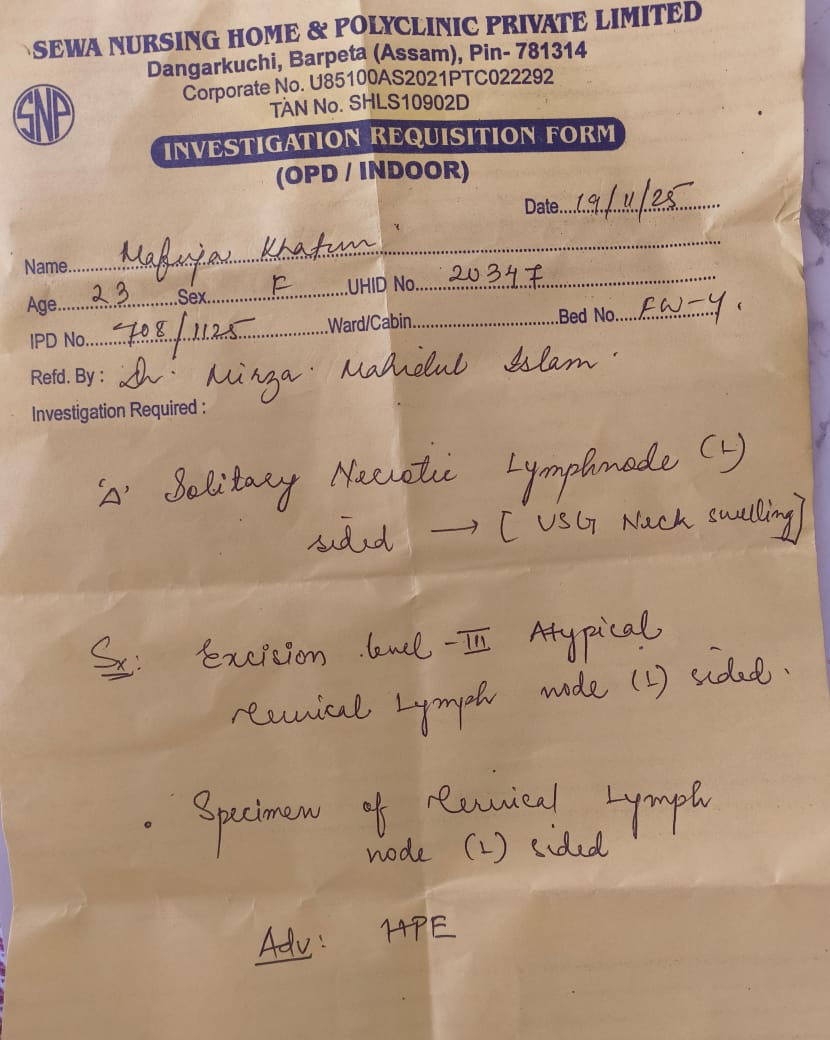 SEWA NURSING HOME & POLYCLINIC PRIVATE LIMITED
Dangarkuchi, Barpeta (Assam), Pin- 781314
Corporate No. U85100AS2021PTC022292
TAN No. SHLS10902D
SNP
INVESTIGATION REQUISITION FORM
(OPD / INDOOR)
Date...19/11/25
Name...Mafuja Khatun
Age...23...Sex...F...UHID No...20347
IPD No...708/1125...Ward/Cabin...Bed No...FW-4.
Refd. By : Dr. Mirza. Mahidul Islam.
Investigation Required :
'Δ' Solitary Necrotic Lymphnode (L)
sided → [ USG Neck swelling]
Sx: Excision level -III Atypical
cervical Lymph node (L) sided.
• Specimen of cervical Lymph
node (L) sided
Adv: HPE